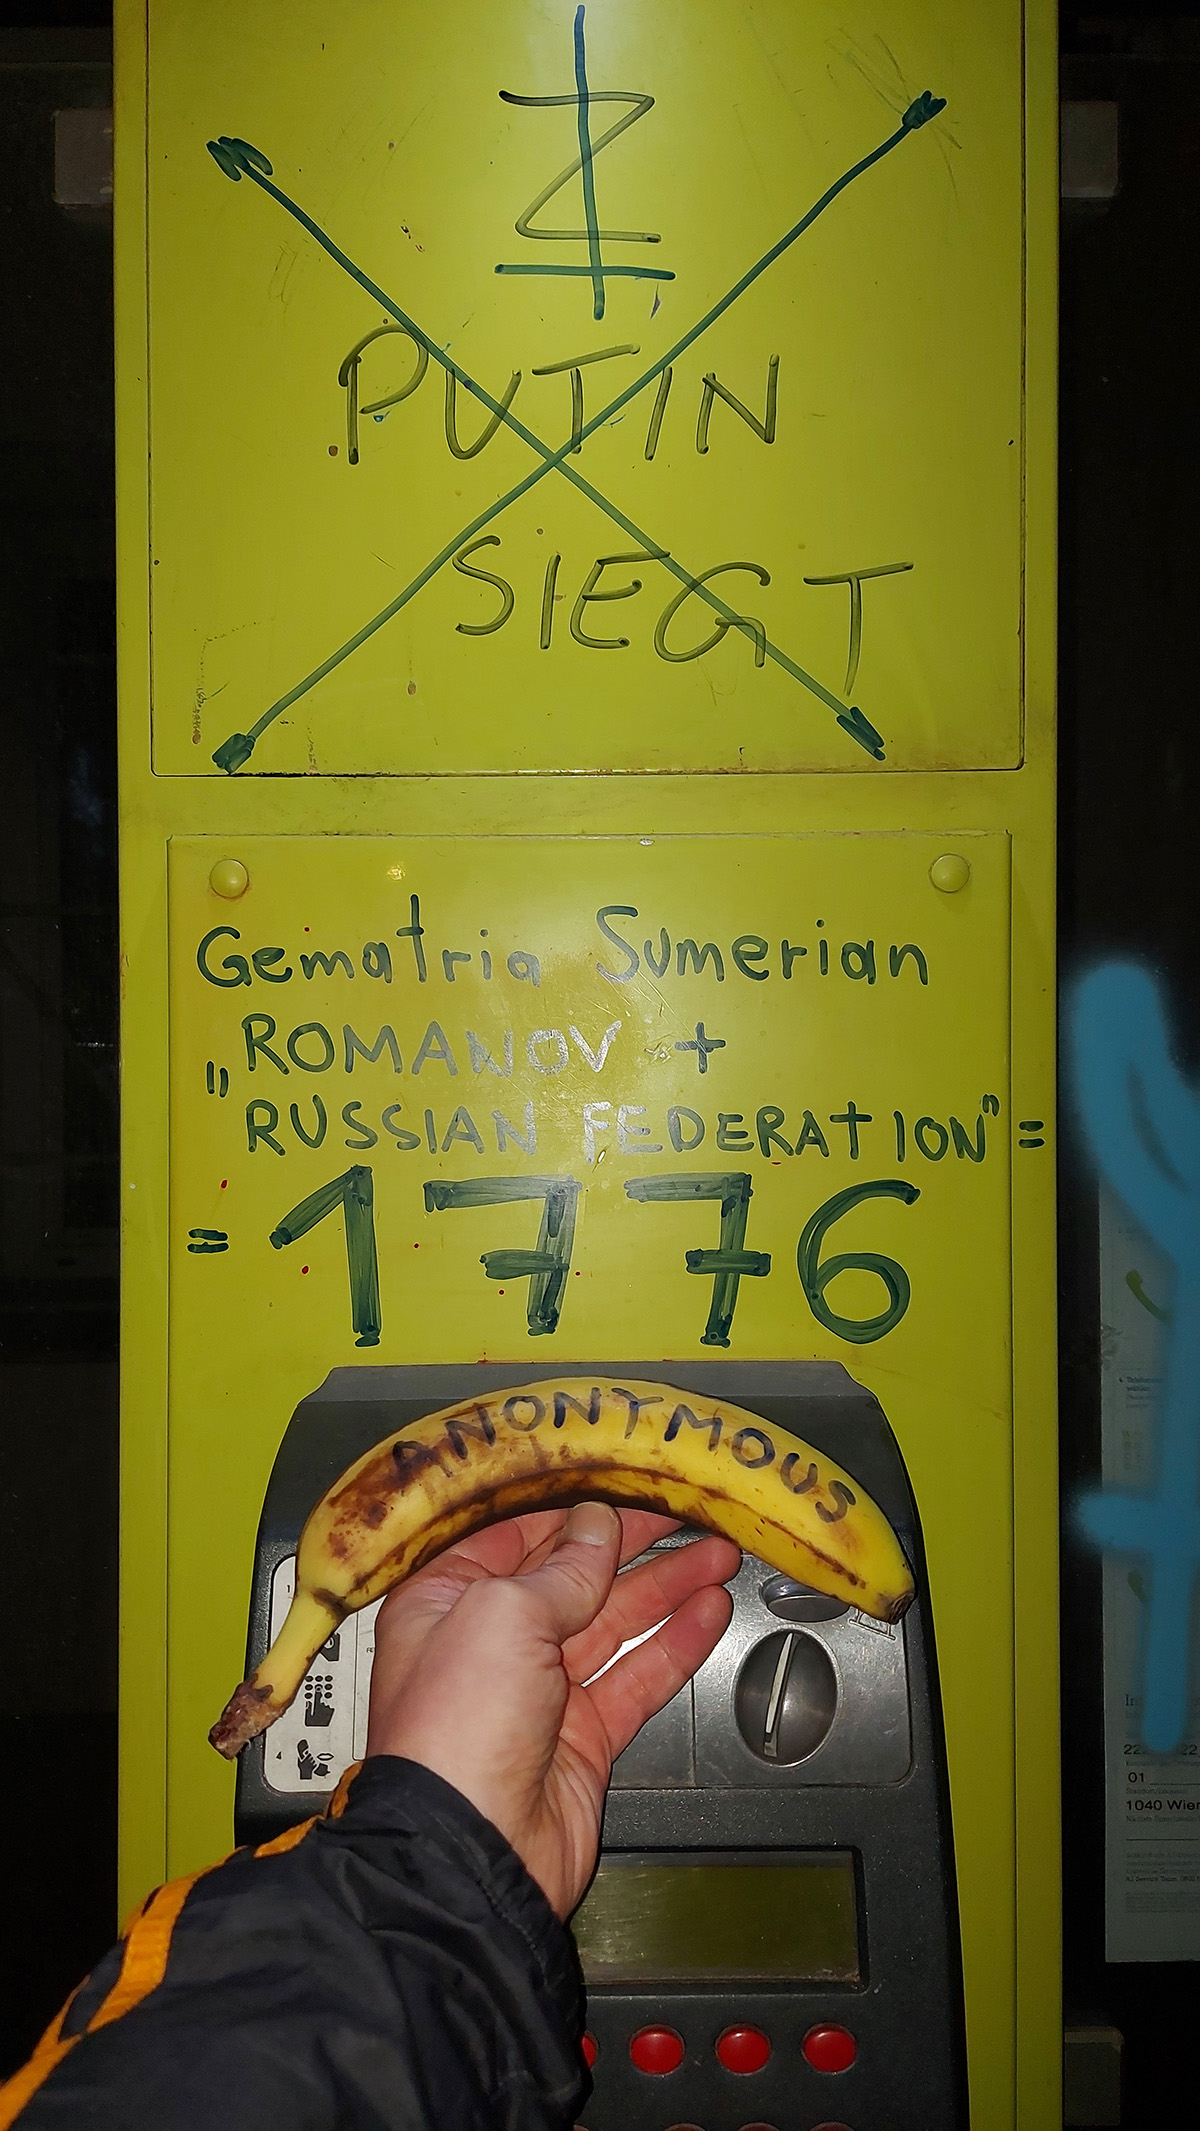 Z
PUTIN
SIEGT
Gematria Sumerian
„ROMANOV +
"RUSSIAN FEDERATION" =
= 1776
ANONYMOUS
1
4
01
1040 Wien